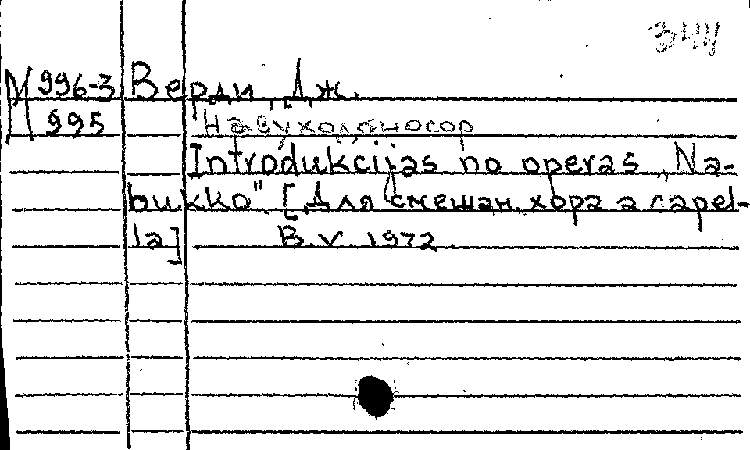 344
М 996-3 Верди, Дж.
995 Навуходоносор
Introdukcijas no operas „Na-
bukko" [Для смешан. хора a capel-
la] B.V. 1972